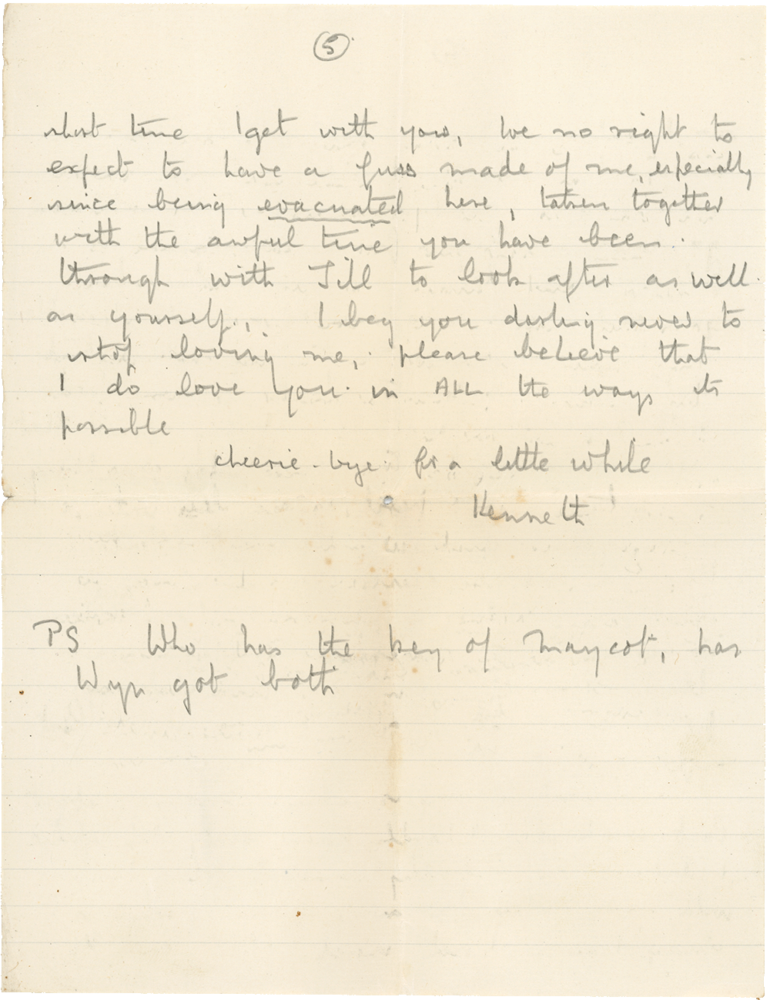 5
short time I get with you, Ive no right to
expect to have a fuss made of me, especially
since being evacuated here, taken together
with the awful time you have been
through with Jill to look after as well
as yourself., I beg you darling never to
stop loving me, please believe that
I do love you in ALL the ways its
possible
cheerie-bye for a little while
Kenneth
PS Who has the key of Maycot, has
Wyn got both